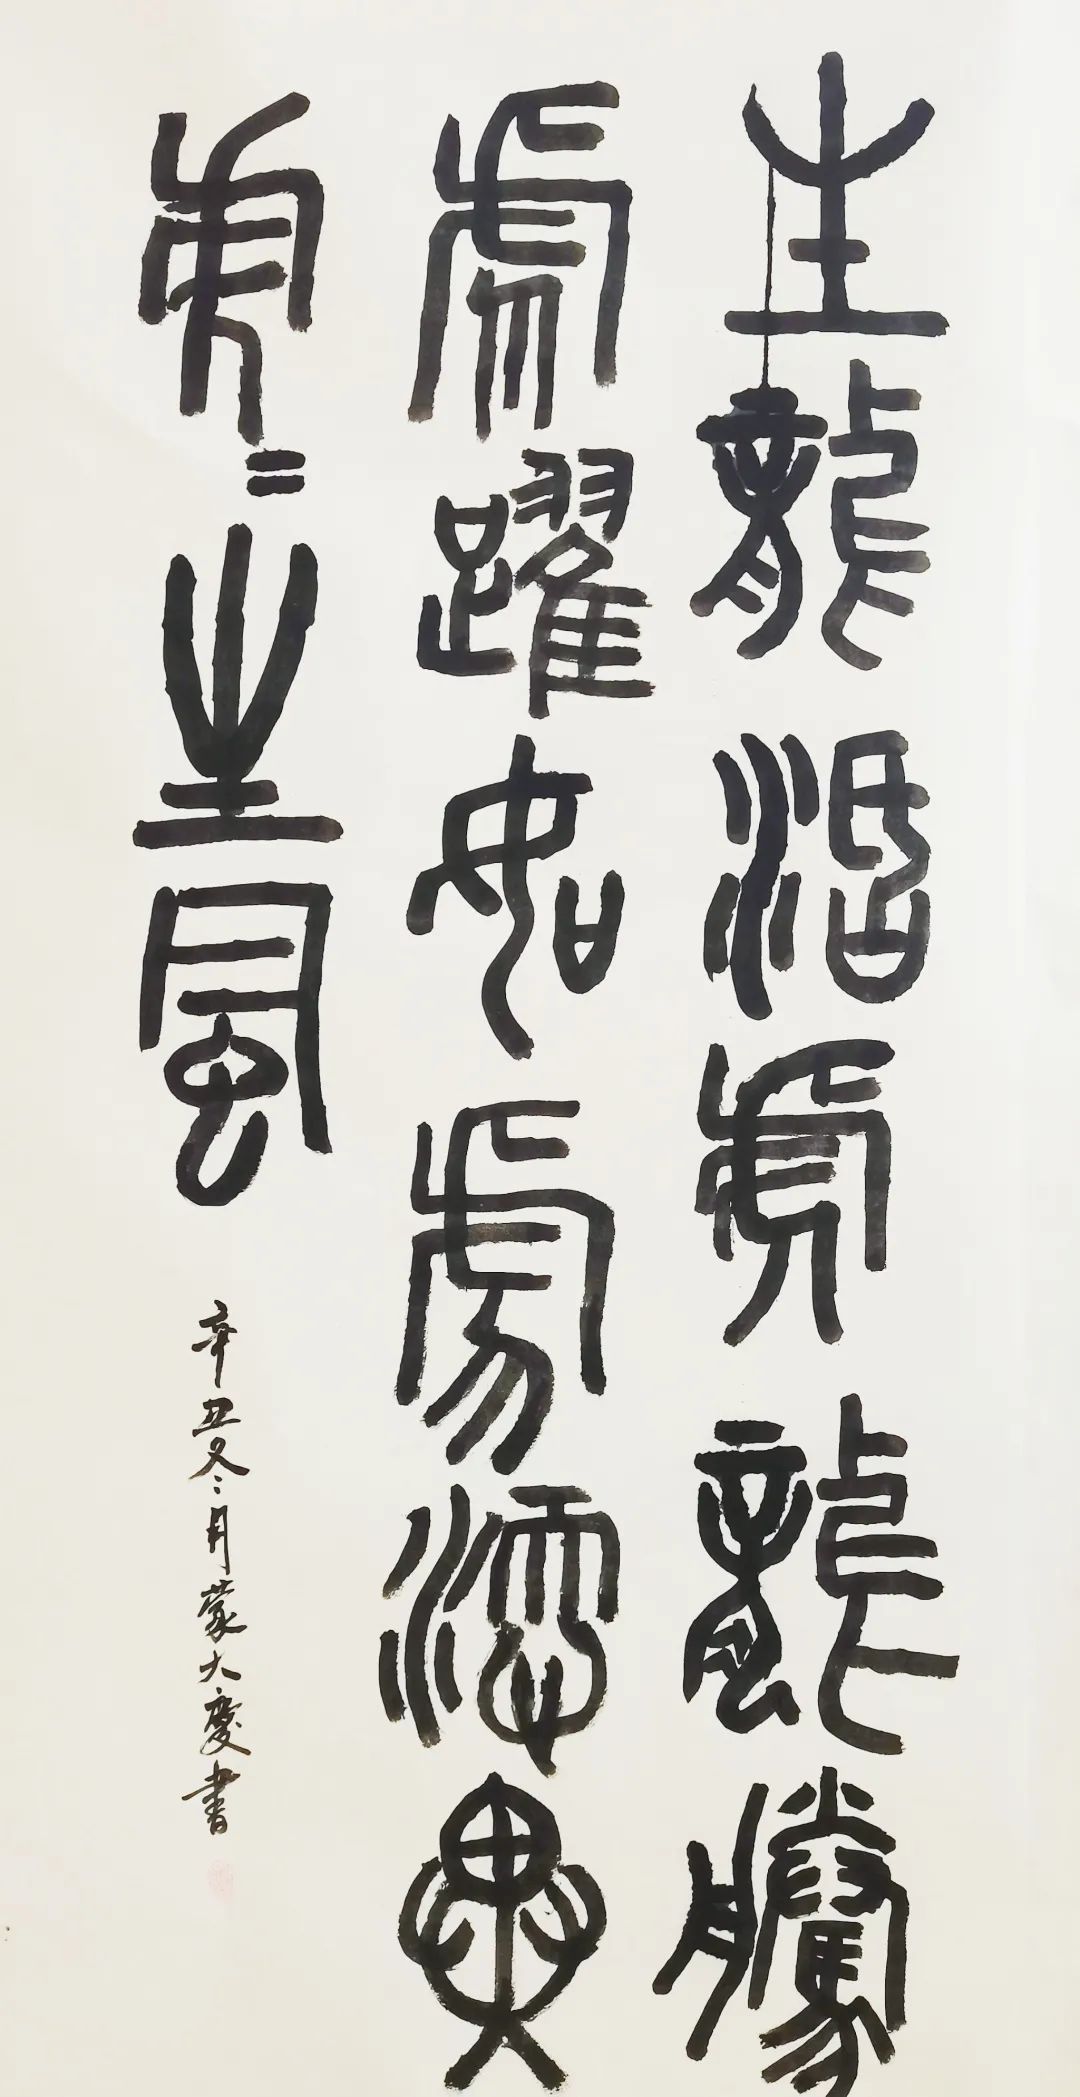 生龍活虎龍騰
虎躍如虎添翼
虎=生風
辛丑冬月蒙大慶書